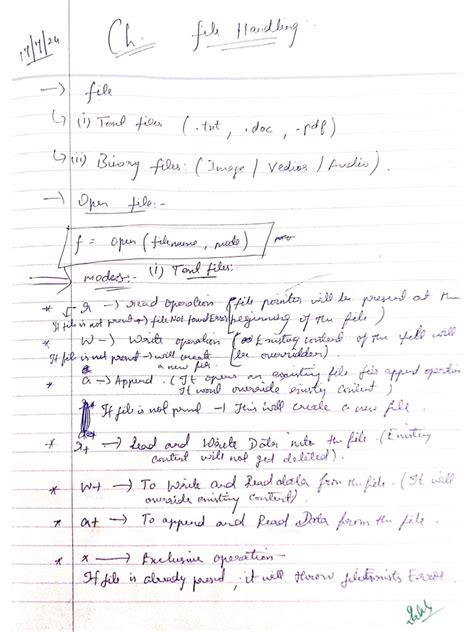 17/7/24
Ch. file Handling:
→ file
↳ (i) Text files (.txt, .doc, .pdf)
↳ (ii) Binary files: (Image / Vedios / Audio).
→ Open file:-
f = open (filename, mode)
modes:- (i) Text files:
* r → read operation (file pointer will be present at the
If file is not presnt → file Not found Error beginning of the file)
* W → Write operation (Existing content of the file will
If file is not presnt → will create be overridden)
a new file
* a → Append. (It opens an existing file for append operation
It won't override existing content)
If file is not presnt → This will create a new file.
* r+ → Read and Write Data into the file. (Existing
content will not get deleted).
* w+ → To Write and Read data from the file. (It will
override existing content).
* a+ → To append and Read Data from the file.
* x → Exclusive operation -
If file is already presnd, it will throw Error